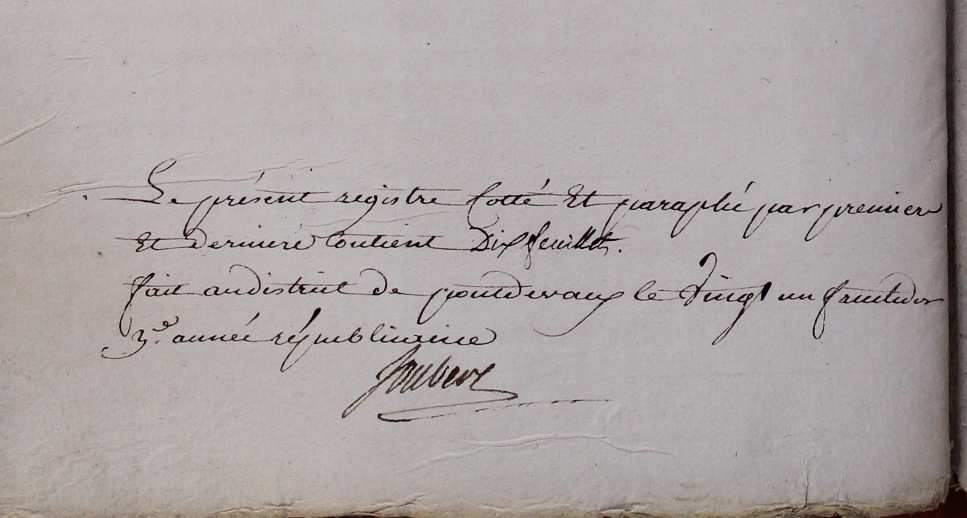 Le présent registre Cotté Et paraphé par premiere
Et derniere Contient Dix feuillets.
fait au district de pontdevaux le vingt un fructidor
3e. année républicaine
Joubert